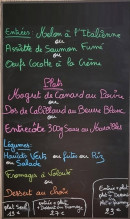 Entrées: Melon à l'Italienne
ou
Assiette de Saumon Fumé
ou
Oeufs Cocotte à la Crème
Plats
Magret de Canard au Porto
ou
Dos de Cabillaud au Beurre Blanc
ou
Entrecôte 300g Sauce au Morilles
Légumes:
Haricots Verts ou frites ou Riz
ou Salade
Fromages à Volonté
ou
Dessert au Choix
plat seul
entrée + plat